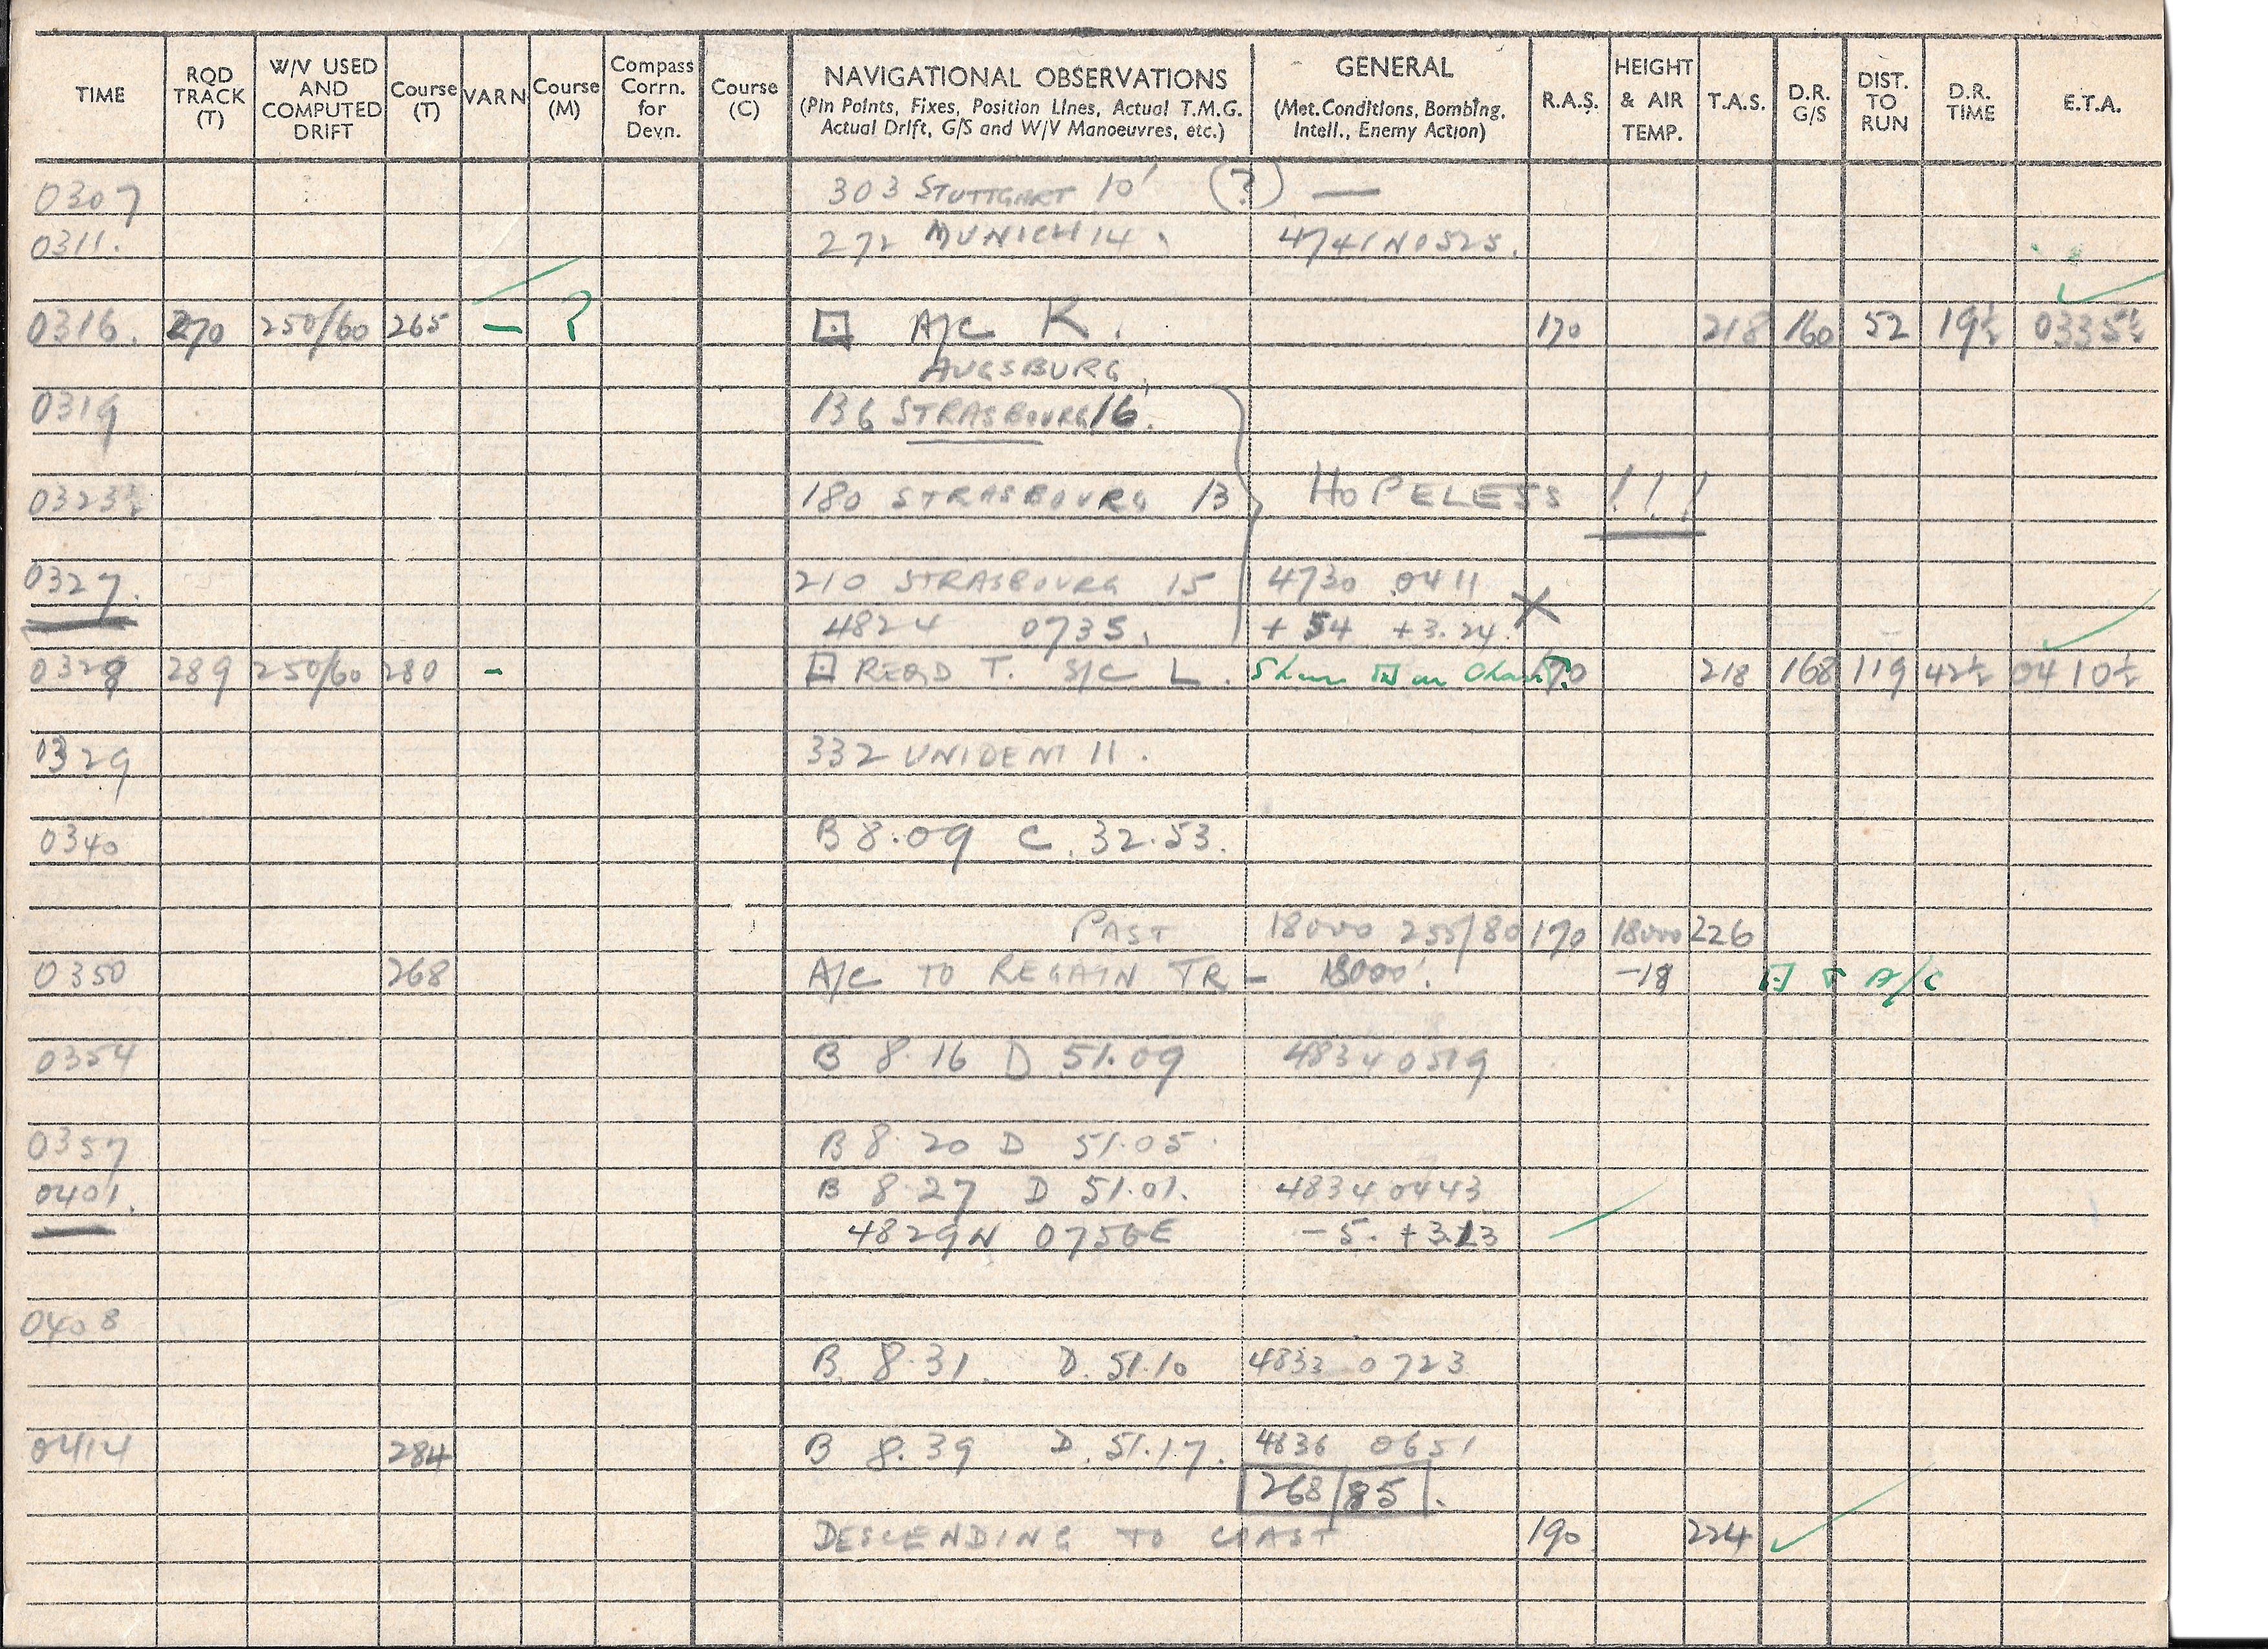 TIME RQD TRACK (T) W/V USED AND COMPUTED DRIFT Course (T) VARN Course (M) Compass Corrn. for Devn. Course (C) NAVIGATIONAL OBSERVATIONS (Pin Points, Fixes, Position Lines, Actual T.M.G. Actual Drift, G/S and W/V Manoeuvres, etc.) GENERAL (Met.Conditions, Bombing, Intell., Enemy Action) R.A.S. HEIGHT & AIR TEMP. T.A.S. D.R. G/S DIST. TO RUN D.R. TIME E.T.A.
0307 303 STUTTGART 10' (?) —
0311. 272 MUNICH 14 4741N 0525.
0316. 270 250/60 265 – ? A/C K. 170 218 160 52 19½ 0335½
AUGSBURG
0319 136 STRASBOURG 16'.
0323½ 180 STRASBOURG 13 HOPELESS !!!
0327. 210 STRASBOURG 15 4730 0411
4824 0735. + 54 +3.24. X
0328 289 250/60 280 - REQD T. S/C L. Show on Chart. 170 218 168 119 42½ 0410½
0329 332 UNIDENT 11.
0340 B 8.09 C. 32.53.
PAST 18000 255/80 170 18000 226
0350 268 A/C TO REGAIN TR - 18000'. -18 A/C
0354 B 8.16 D 51.09 4834 0519
0357 B 8.20 D 51.05
0401. B 8.27 D 51.01. 4834 0443
4829N 0756E -5. +3.13
0408
B. 8.31. D. 51.10 4833 0723
0414 284 B 8.39 D. 51.17. 4836 0651
268/85.
DESCENDING TO COAST 190 224